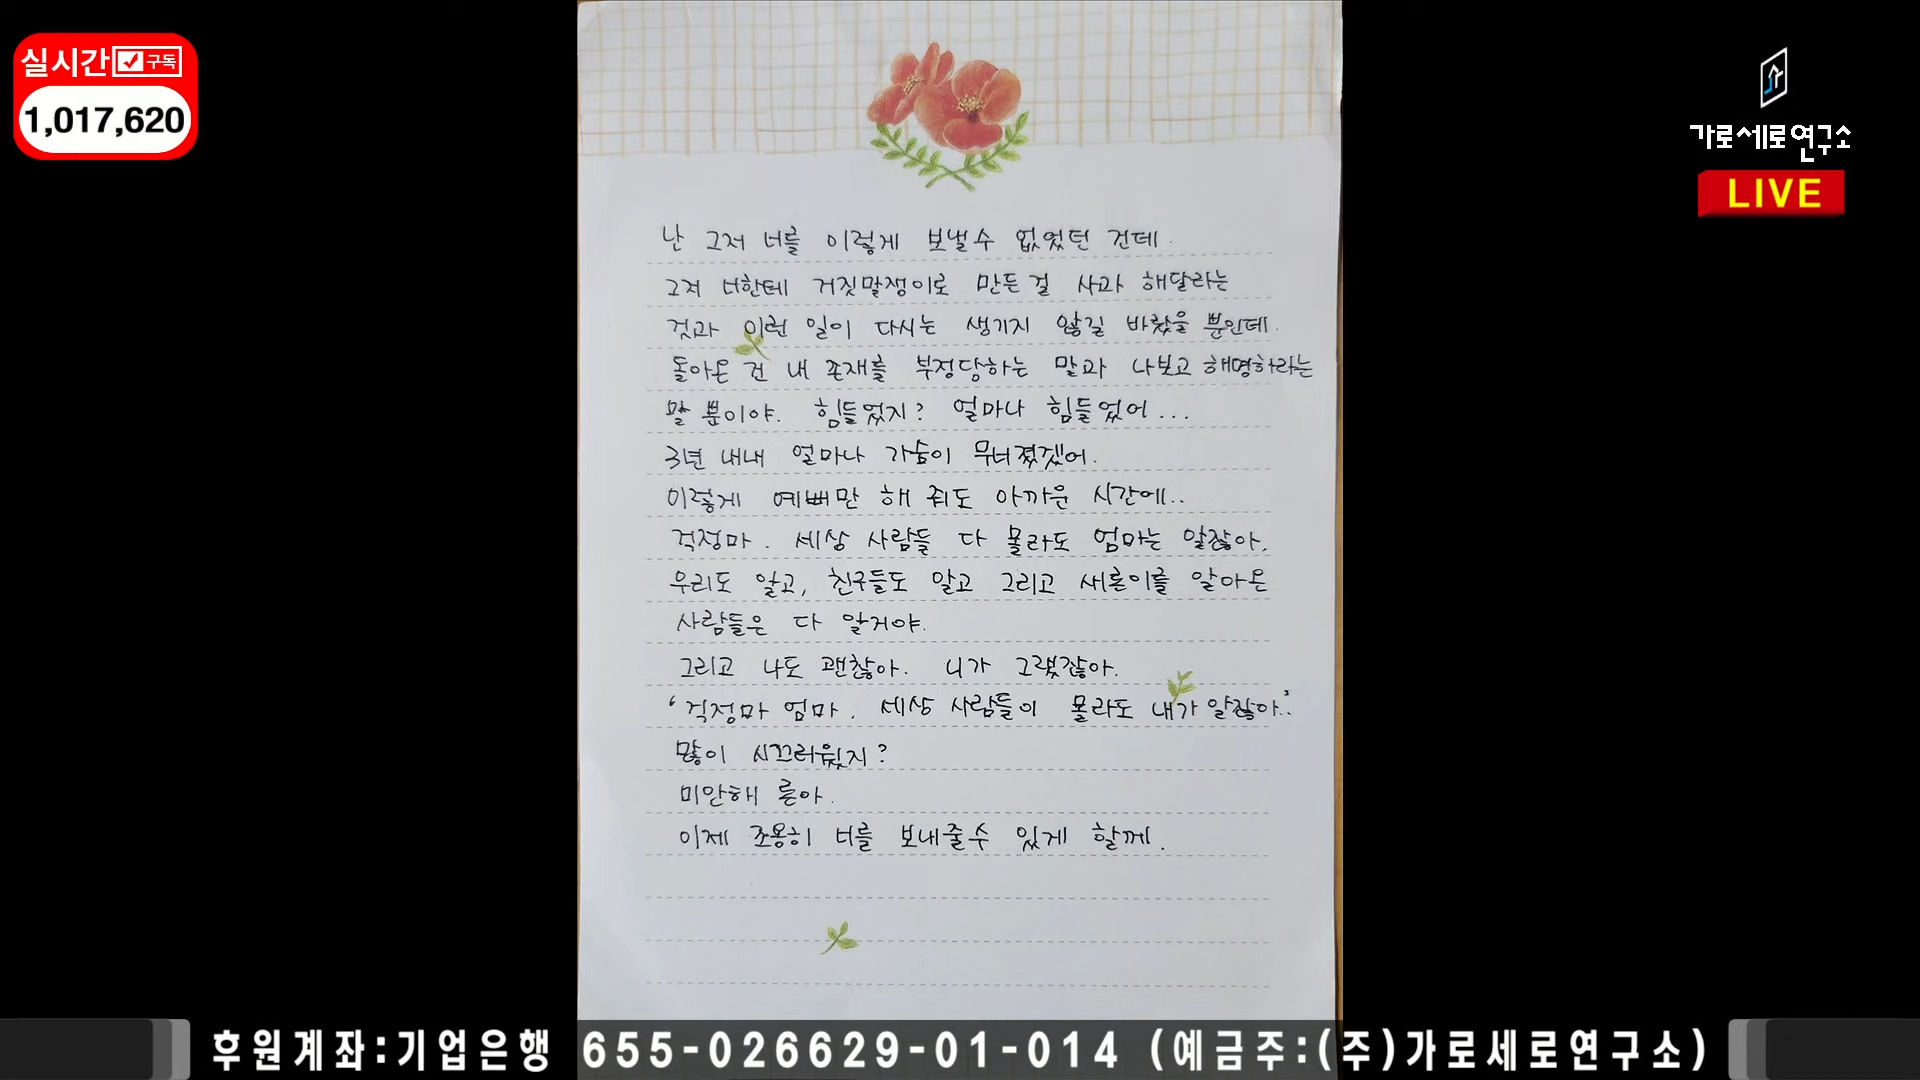 실시간 구독
1,017,620
가로세로연구소
LIVE
난 그저 너를 이렇게 보낼수 없었던 건데.
그저 너한테 거짓말쟁이로 만든걸 사과 해달라는
것과 이런 일이 다시는 생기지 않길 바랐을 뿐인데.
돌아온 건 내 존재를 부정당하는 말과 나보고 해명하라는
말 뿐이야. 힘들었지? 얼마나 힘들었어...
3년 내내 얼마나 가슴이 무너졌겠어.
이렇게 예뻐만 해 줘도 아까운 시간에..
걱정마. 세상 사람들 다 몰라도 엄마는 알잖아.
우리도 알고, 친구들도 알고 그리고 새론이를 알아온
사람들은 다 알거야.
그리고 나도 괜찮아. 니가 그랬잖아.
'걱정마 엄마. 세상 사람들이 몰라도 내가 알잖아..'
많이 시끄러웠지?
미안해 론아.
이제 조용히 너를 보내줄수 있게 할께.
후원계좌:기업은행 655-026629-01-014 (예금주:(주)가로세로연구소)